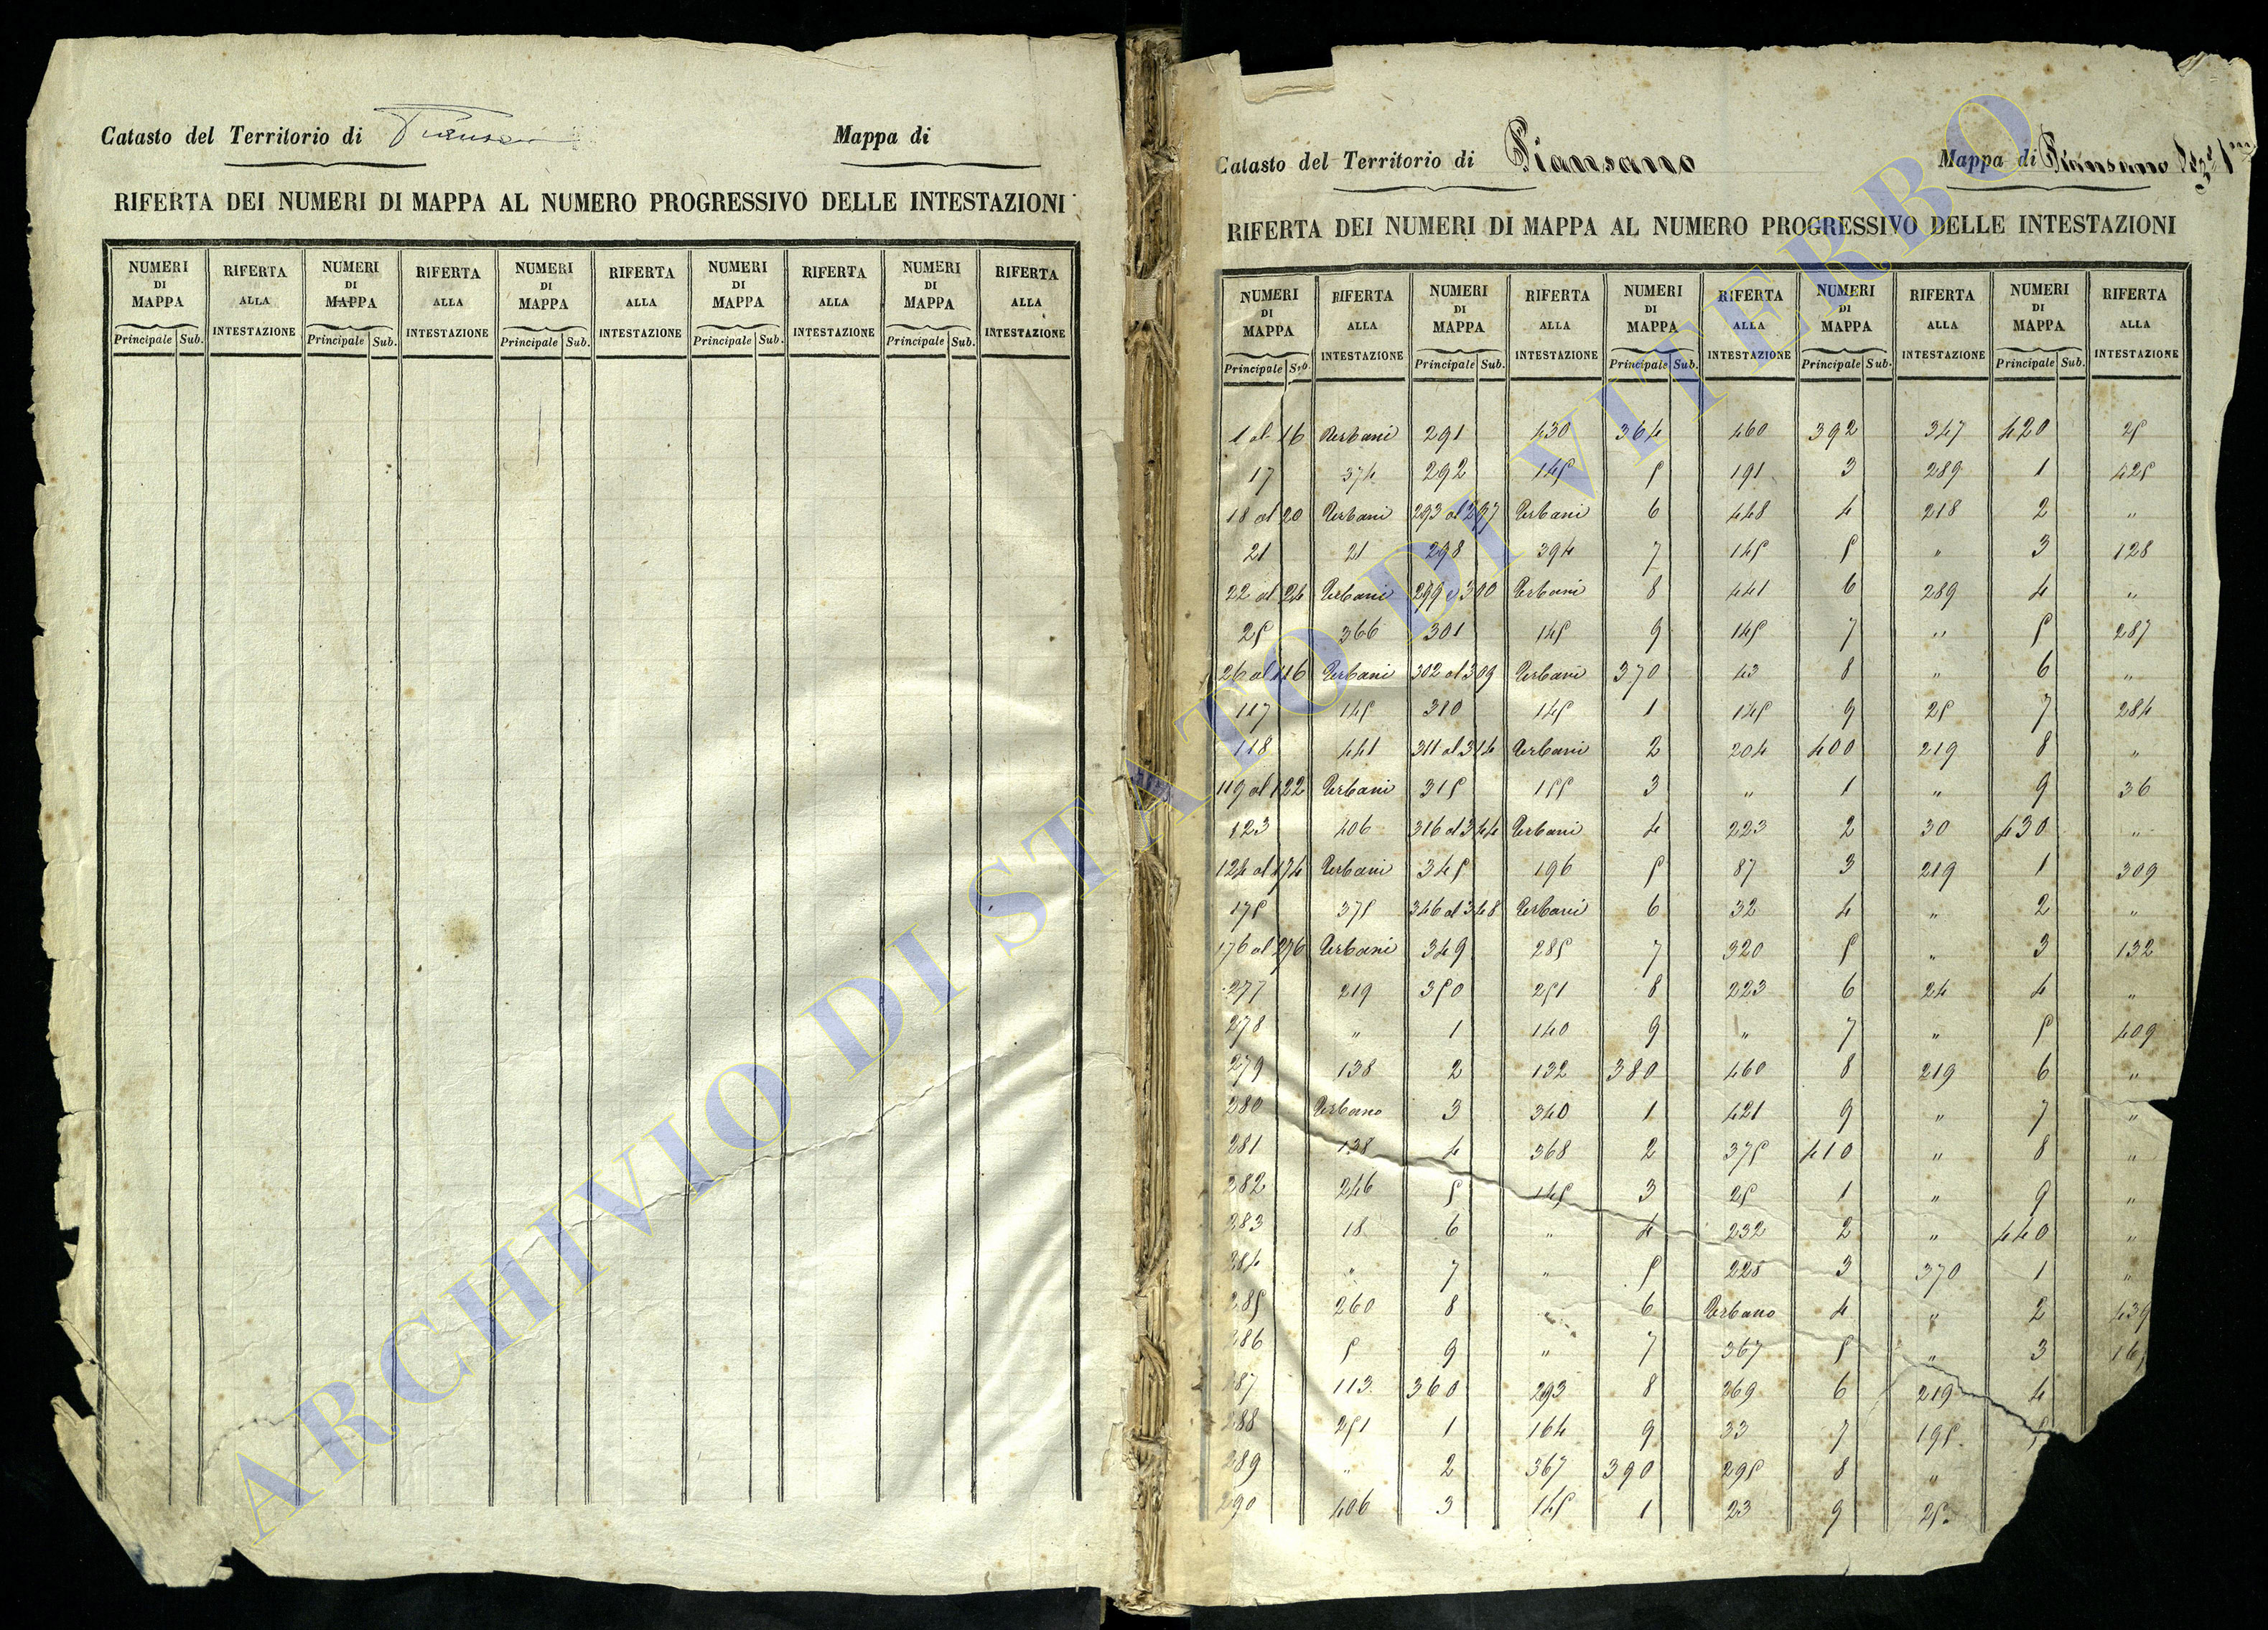 Catasto del Territorio di Piansano Mappa di
RIFERTA DEI NUMERI DI MAPPA AL NUMERO PROGRESSIVO DELLE INTESTAZIONI
NUMERI DI MAPPA RIFERTA ALLA INTESTAZIONE NUMERI DI MAPPA RIFERTA ALLA INTESTAZIONE NUMERI DI MAPPA RIFERTA ALLA INTESTAZIONE NUMERI DI MAPPA RIFERTA ALLA INTESTAZIONE NUMERI DI MAPPA RIFERTA ALLA INTESTAZIONE
Principale Sub. Principale Sub. Principale Sub. Principale Sub. Principale Sub.
Catasto del Territorio di Piansano Mappa di Piansano
RIFERTA DEI NUMERI DI MAPPA AL NUMERO PROGRESSIVO DELLE INTESTAZIONI
NUMERI DI MAPPA RIFERTA ALLA INTESTAZIONE NUMERI DI MAPPA RIFERTA ALLA INTESTAZIONE NUMERI DI MAPPA RIFERTA ALLA INTESTAZIONE NUMERI DI MAPPA RIFERTA ALLA INTESTAZIONE NUMERI DI MAPPA RIFERTA ALLA INTESTAZIONE
Principale Sub. Principale Sub. Principale Sub. Principale Sub. Principale Sub.
1 al 16 Urbani 291 430 364 460 392 347 420 25
17 374 292 145 5 191 3 289 1 425
18 al 20 Urbani 293 al 297 Urbani 6 448 4 218 2 "
21 21 298 394 7 145 5 " 3 128
22 al 24 Urbani 299 e 300 Urbani 8 441 6 289 4 "
25 366 301 145 9 145 7 " 5 287
26 al 116 Urbani 302 al 309 Urbani 370 43 8 " 6 "
117 145 310 145 1 145 9 25 7 284
118 441 311 al 314 Urbani 2 204 400 219 8 "
119 al 122 Urbani 315 155 3 " 1 " 9 36
123 406 316 al 344 Urbani 4 223 2 30 430 "
124 al 174 Urbani 345 196 5 87 3 219 1 309
175 375 346 al 348 Urbani 6 32 4 " 2 "
176 al 276 Urbani 349 285 7 320 5 " 3 132
277 219 350 251 8 223 6 24 4 "
278 " 1 140 9 " 7 " 5 409
279 138 2 132 380 460 8 219 6 "
280 Urbano 3 340 1 421 9 " 7 "
281 138 4 368 2 375 410 " 8 "
282 246 5 145 3 25 1 " 9 "
283 18 6 " 4 232 2 " 440 "
284 " 7 " 5 228 3 370 1 "
285 260 8 " 6 Urbano 4 " 2 439
286 5 9 " 7 367 5 " 3 16
287 113 360 293 8 269 6 219 4
288 251 1 164 9 33 7 195 5
289 " 2 367 390 295 8 "
290 406 3 145 1 23 9 25
ARCHIVIO DI STATO DI VITERBO